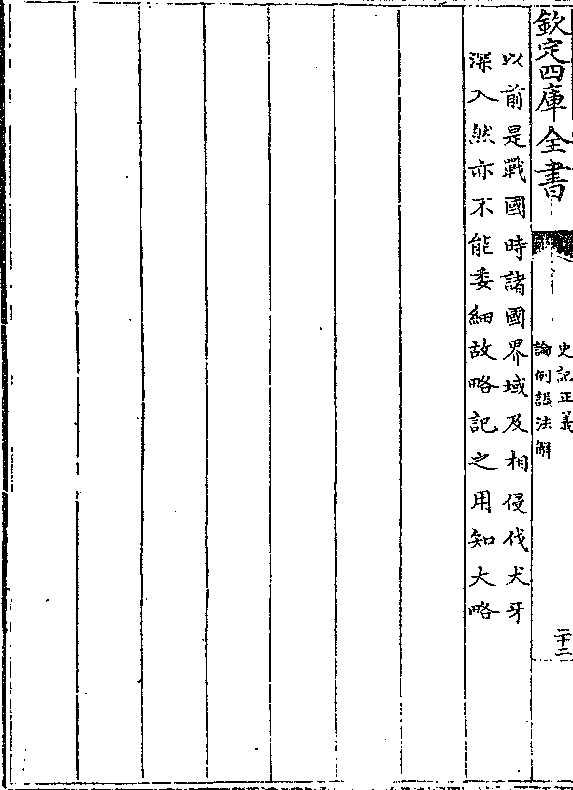 欽定四庫全書
史記正義
論例諡法解
二十二
以前是戰國時諸國界域及相侵伐犬牙
深入然亦不能委細故略記之用知大略